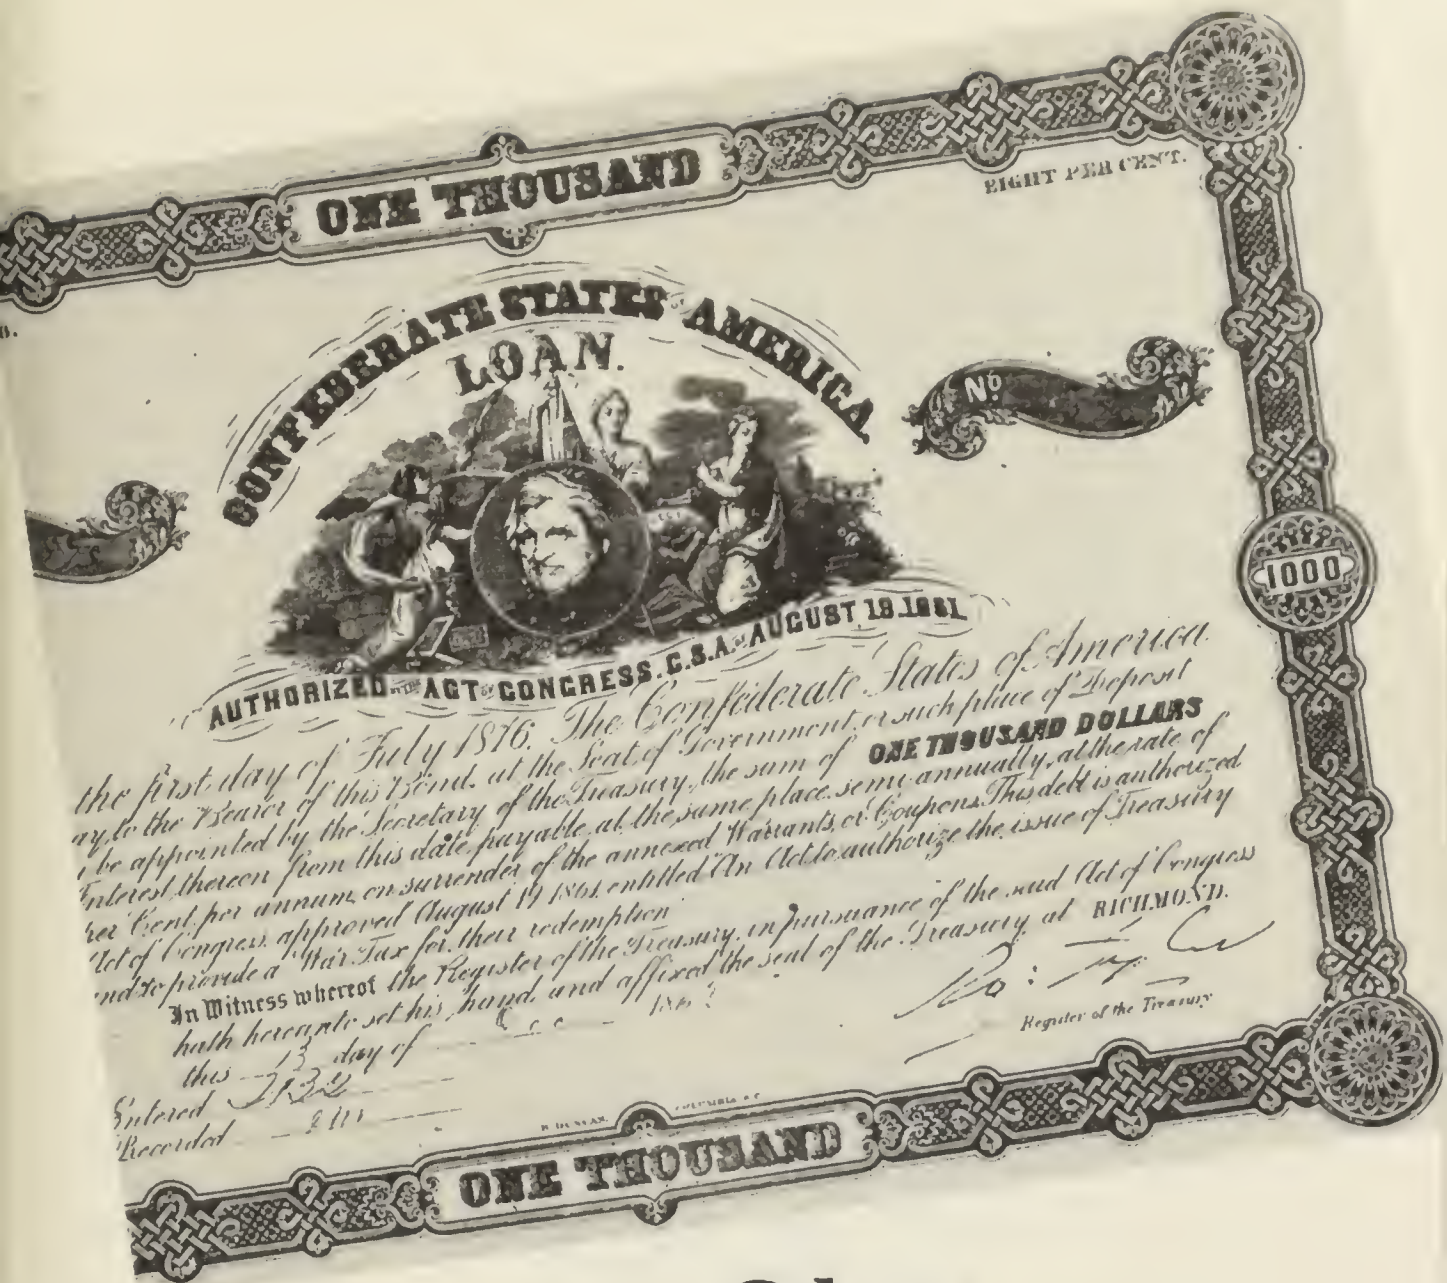 ONE THOUSAND
EIGHT PER CENT.
CONFEDERATE STATES OF AMERICA
LOAN.
No.
AUTHORIZED BY THE ACT OF CONGRESS. C.S.A. OF AUGUST 19.1861
1000
the first day of July 1876. The Confederate States of America
ay, to the Bearer of this Bond, at the Seat of Government, or such place of Deposit
be appointed by the Secretary of the Treasury, the sum of ONE THOUSAND DOLLARS
Interest thereon from this date payable at the same place semi annually, at the rate of
per Cent, per annum, on surrender of the annexed Warrants, or Coupons. This debt is authorized
Act of Congress, approved August 19 1861. entitled "An Act to authorize the issue of Treasury
and to provide a War Tax for their redemption
In Witness whereof the Register of the Treasury, in pursuance of the said Act of Congress
hath hereunto set his hand, and affixed the seal of the Treasury, at RICHMOND.
this 13 day of 186
Register of the Treasury
Entered
Recorded
B. DUNCAN, COLUMBIA S.C.
ONE THOUSAND